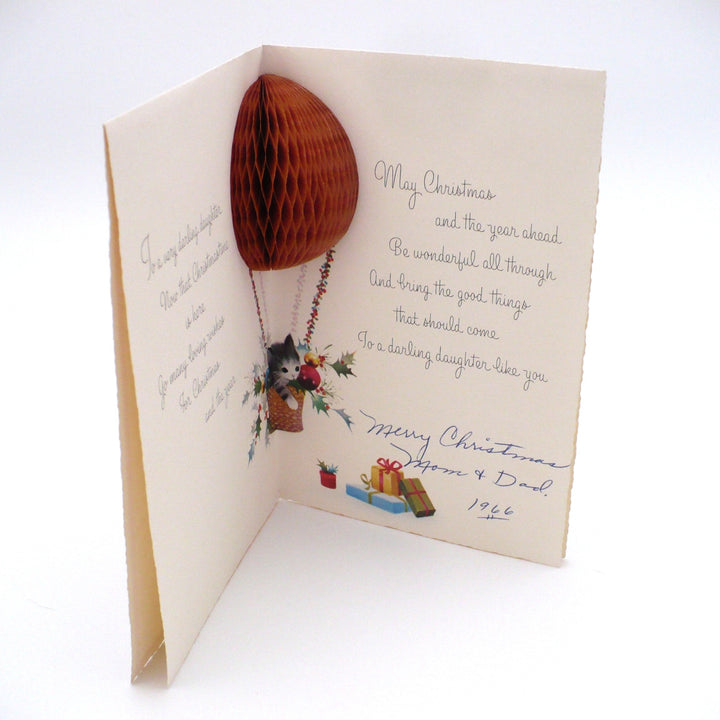 To a very darling daughter
Now that Christmastime
is here
Go many loving wishes
For Christmas
and the year
May Christmas
and the year ahead
Be wonderful all through
And bring the good things
that should come
To a darling daughter like you
Merry Christmas
Mom & Dad.
1966